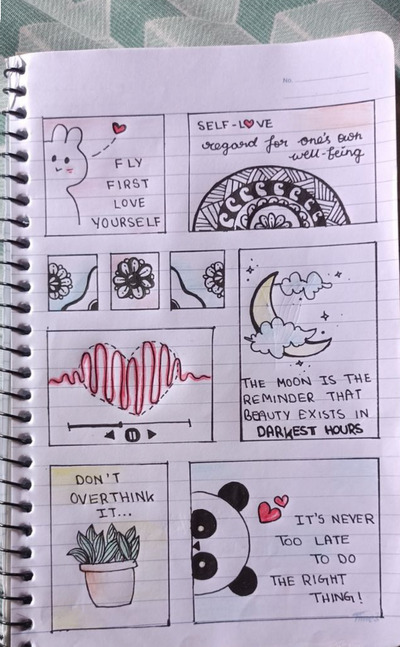 No.
FLY
FIRST
LOVE
YOURSELF
SELF-LOVE
regard for one's own
well-being
THE MOON IS THE
REMINDER THAT
BEAUTY EXISTS IN
DARKEST HOURS
DON'T
OVERTHINK
IT...
IT'S NEVER
TOO LATE
TO DO
THE RIGHT
THING!